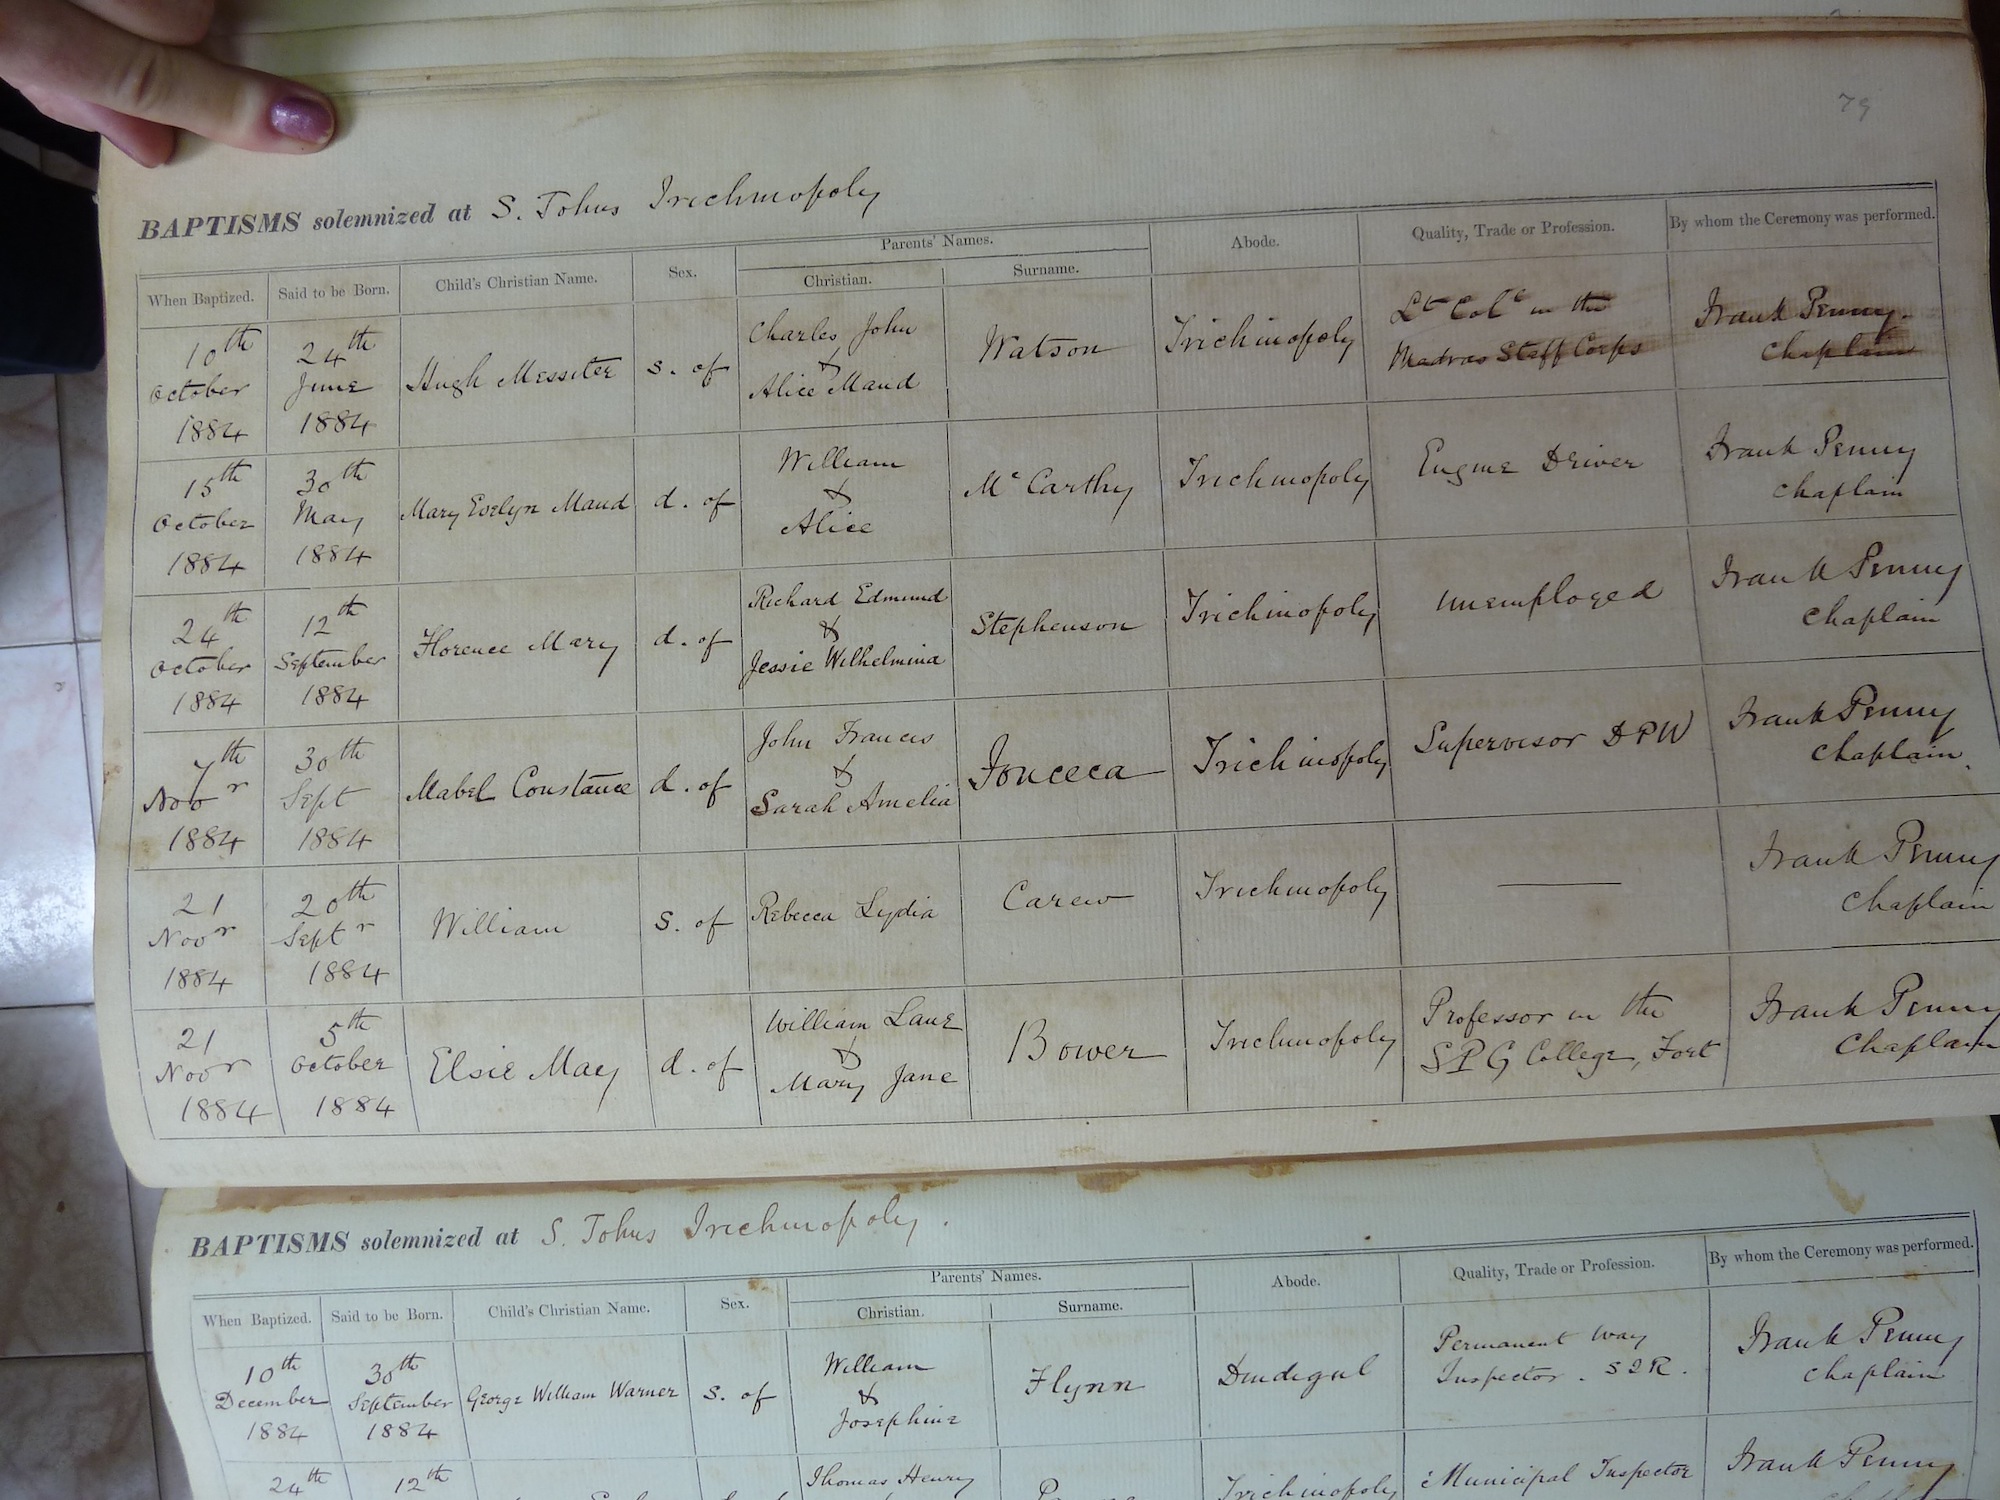 79
BAPTISMS solemnized at S. Johns Trichinopoly
When Baptized. Said to be Born. Child's Christian Name. Sex. Parents' Names. Abode. Quality, Trade or Profession. By whom the Ceremony was performed.
Christian. Surname.
10th October 1884 24th June 1884 Hugh Messiter s. of Charles John & Alice Maud Watson Trichinopoly Lt Col in the Madras Staff Corps Frank Penny. Chaplain
15th October 1884 30th May 1884 Mary Evelyn Maud d. of William & Alice McCarthy Trichinopoly Engine Driver Frank Penny Chaplain
24th October 1884 12th September 1884 Florence Mary d. of Richard Edmund & Jessie Wilhelmina Stephenson Trichinopoly unemployed Frank Penny Chaplain
7th Novr 1884 30th Sept 1884 Mabel Constance d. of John Francis & Sarah Amelia Fonceca Trichinopoly Supervisor DPW Frank Penny Chaplain.
21 Novr 1884 20th Septr 1884 William s. of Rebecca Lydia Carew Trichinopoly — Frank Penny Chaplain
21 Novr 1884 5th October 1884 Elsie May d. of William Lane & Mary Jane Bower Trichinopoly Professor in the SPG College, Fort Frank Penny Chaplain
BAPTISMS solemnized at S. Johns Trichinopoly.
When Baptized. Said to be Born. Child's Christian Name. Sex. Parents' Names. Abode. Quality, Trade or Profession. By whom the Ceremony was performed.
Christian. Surname.
10th December 1884 30th September 1884 George William Warner s. of William & Josephine Flynn Dindigul Permanent Way Inspector. SIR. Frank Penny Chaplain
24th 12th Thomas Henry Trichinopoly Municipal Inspector Frank Penny